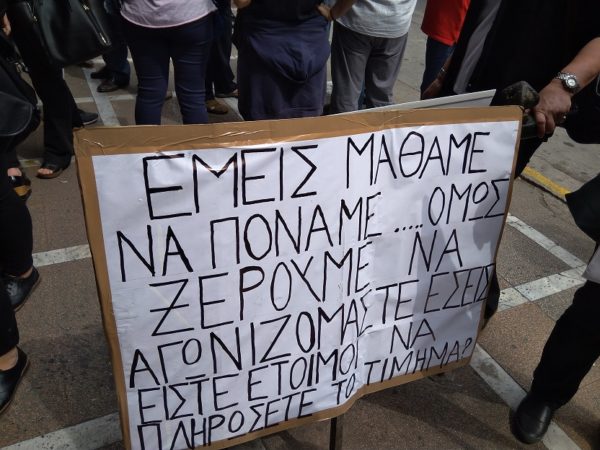 ΕΜΕΙΣ ΜΑΘΑΜΕ
ΝΑ ΠΟΝΑΜΕ.....ΟΜΩΣ
ΞΕΡΟΥΜΕ ΝΑ
ΑΓΩΝΙΖΟΜΑΣΤΕ ΕΣΕΙΣ
ΕΙΣΤΕ ΕΤΟΙΜΟΙ ΝΑ
ΠΛΗΡΩΣΕΤΕ ΤΟ ΤΙΜΗΜΑ?